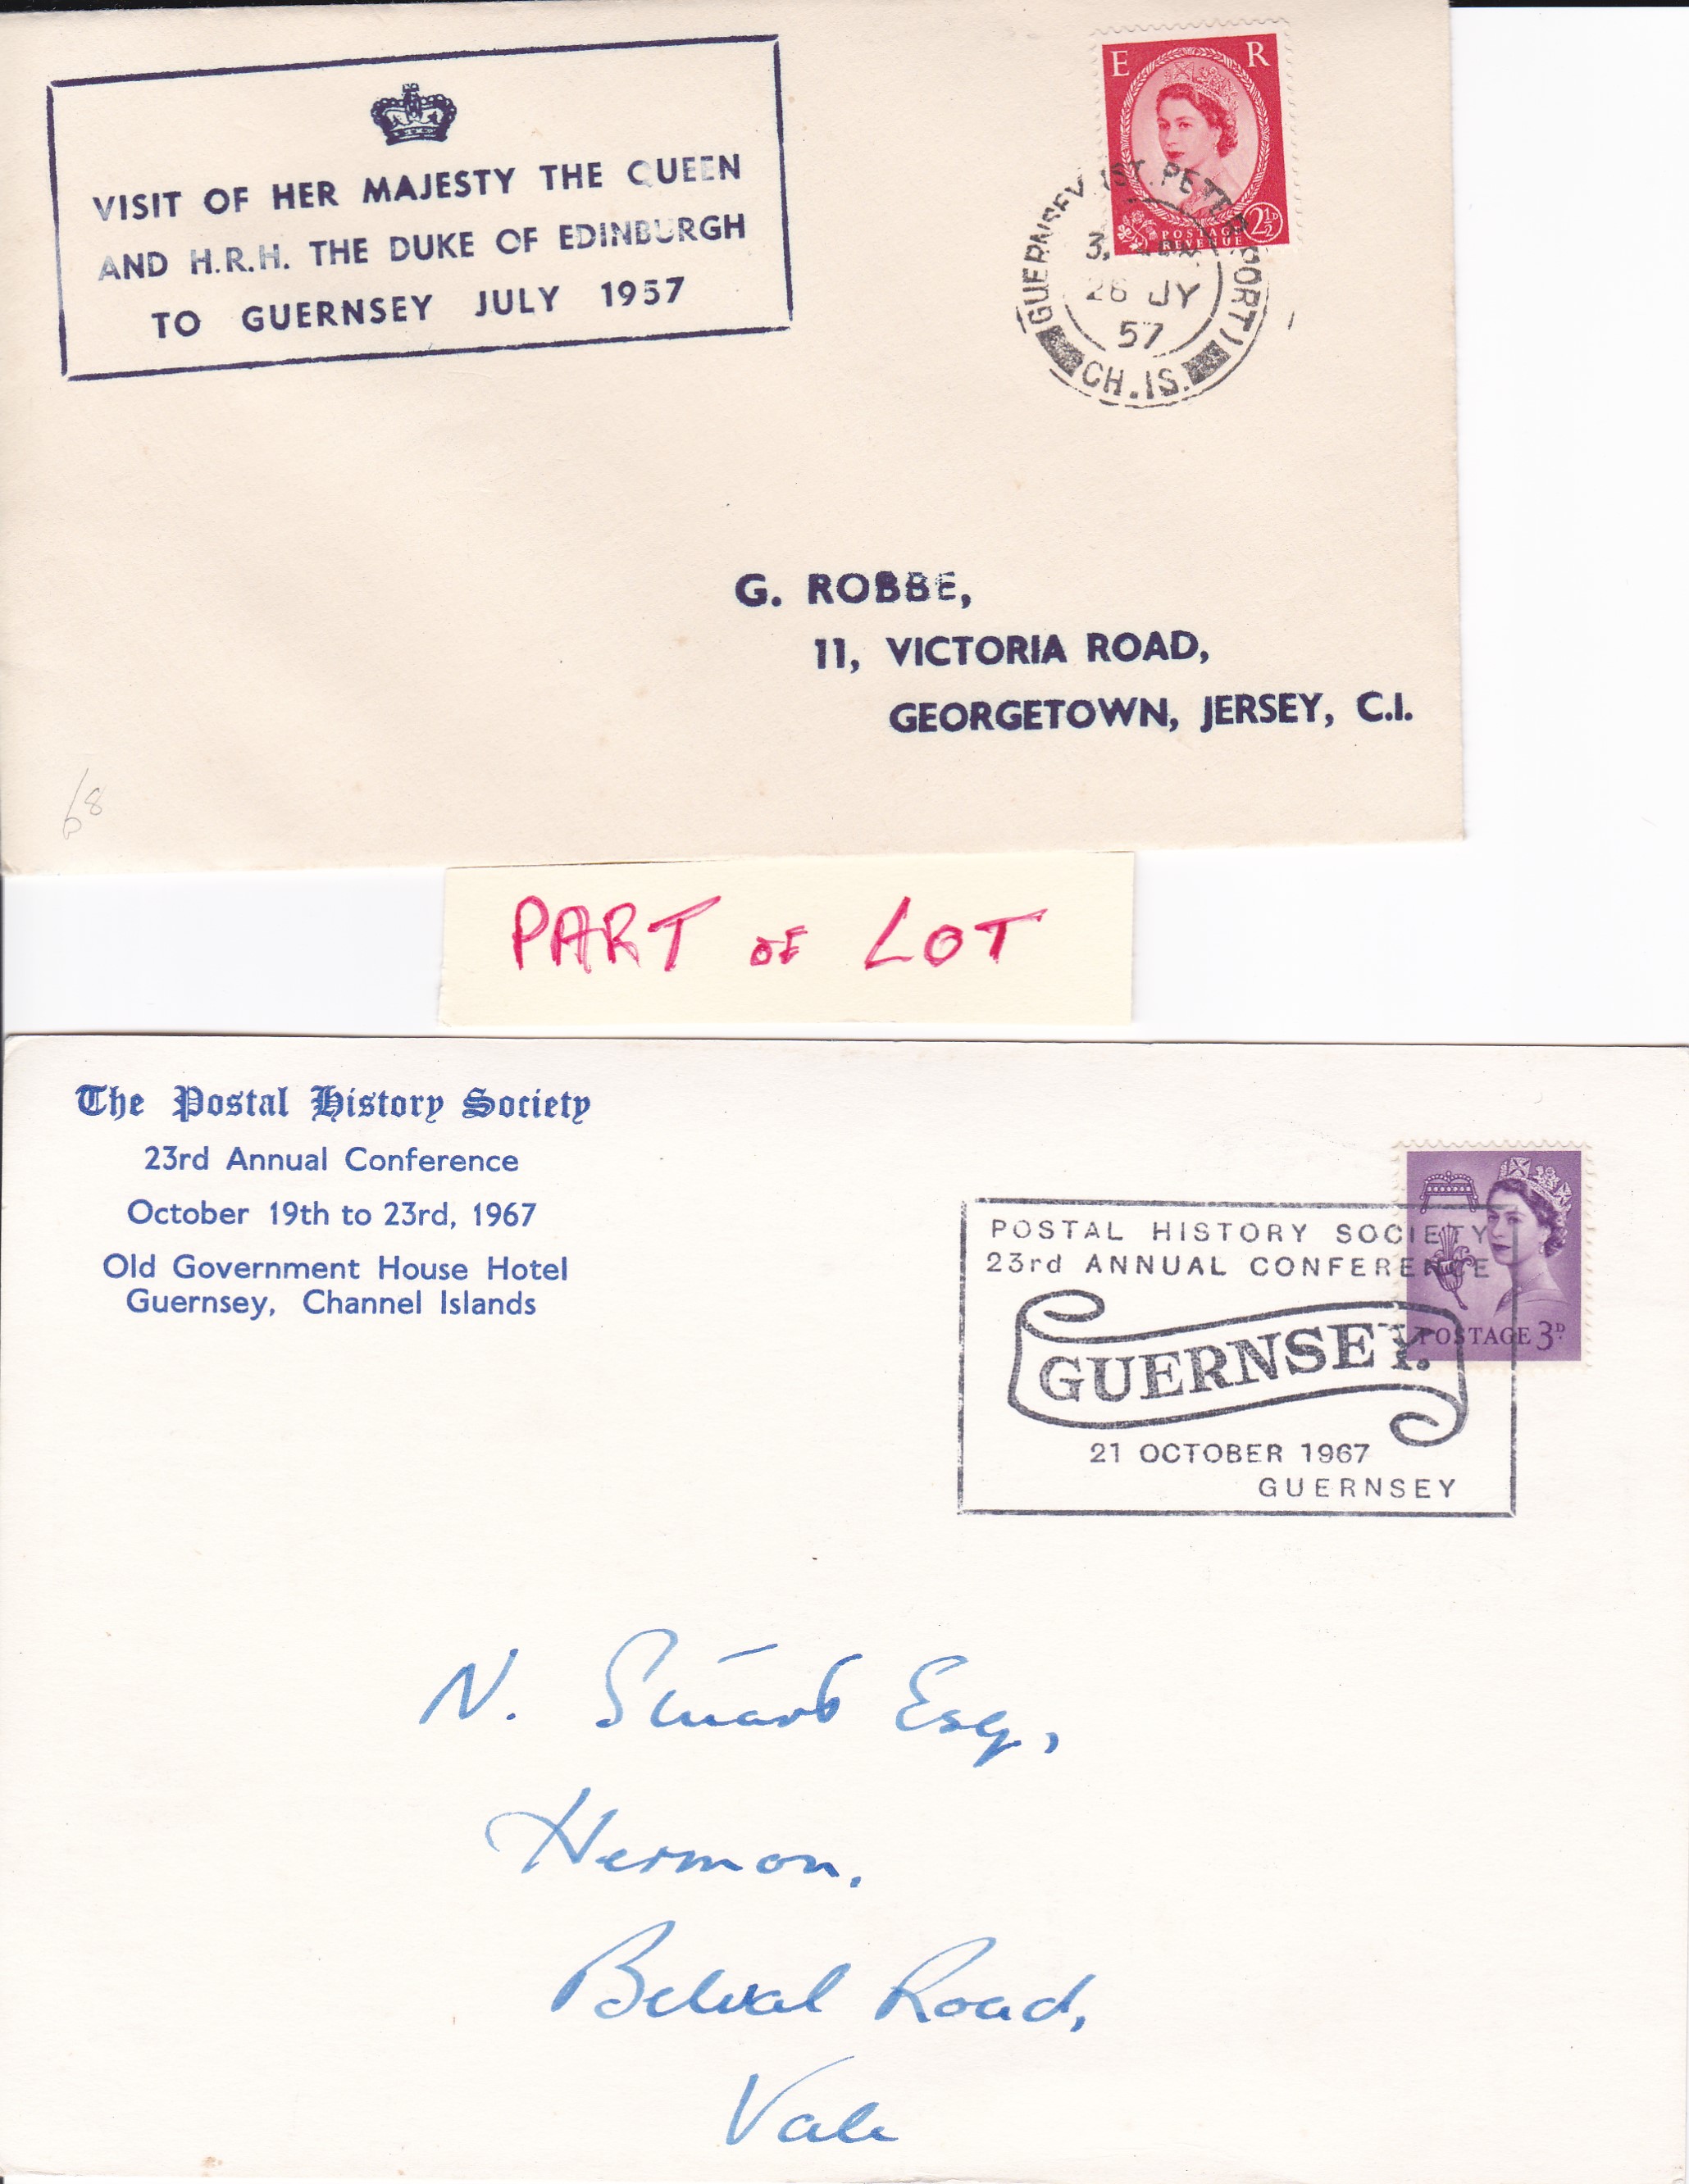 VISIT OF HER MAJESTY THE QUEEN
AND H.R.H. THE DUKE OF EDINBURGH
TO GUERNSEY JULY 1957
E R
POSTAGE
REVENUE
2½D
GUERNSEY (ST. PETER PORT)
26 JY
57
CH. IS.
G. ROBBE,
11, VICTORIA ROAD,
GEORGETOWN, JERSEY, C.I.
68
PART OF LOT
The Postal History Society
23rd Annual Conference
October 19th to 23rd, 1967
Old Government House Hotel
Guernsey, Channel Islands
POSTAL HISTORY SOCIETY
23rd ANNUAL CONFERENCE
GUERNSEY.
21 OCTOBER 1967
GUERNSEY
POSTAGE 3D.
N. Stuart Esq,
Hermon.
Belval Road,
Vale